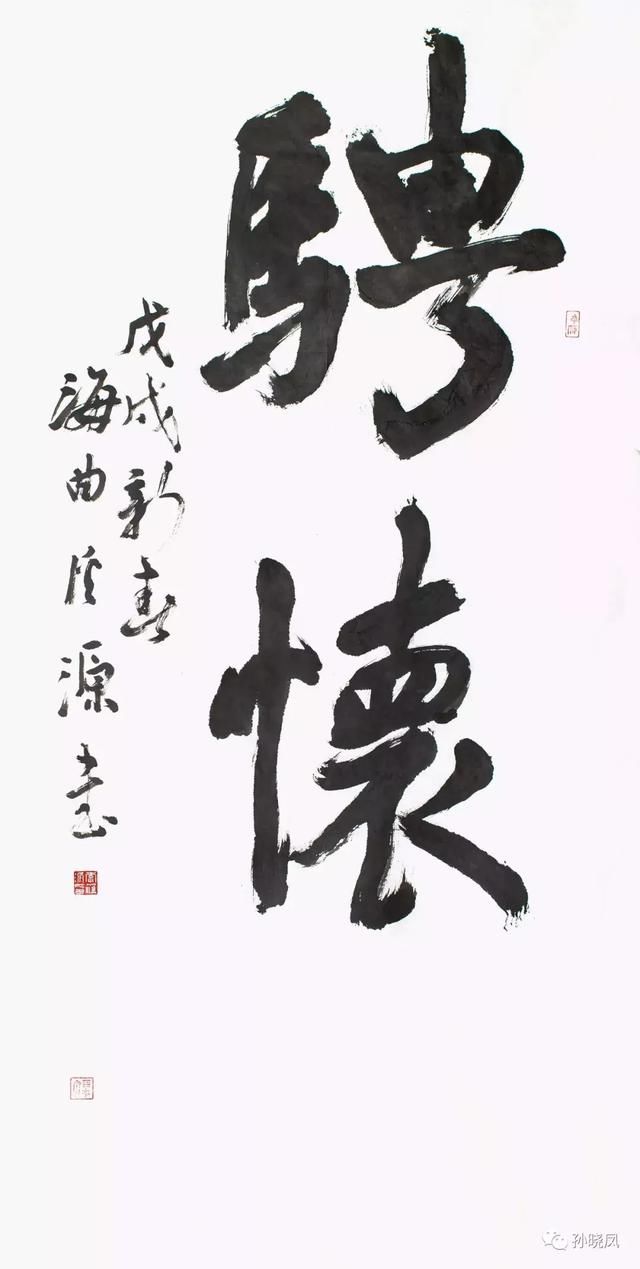 騁懷
戊戌新春
海曲 源書
孙晓凤